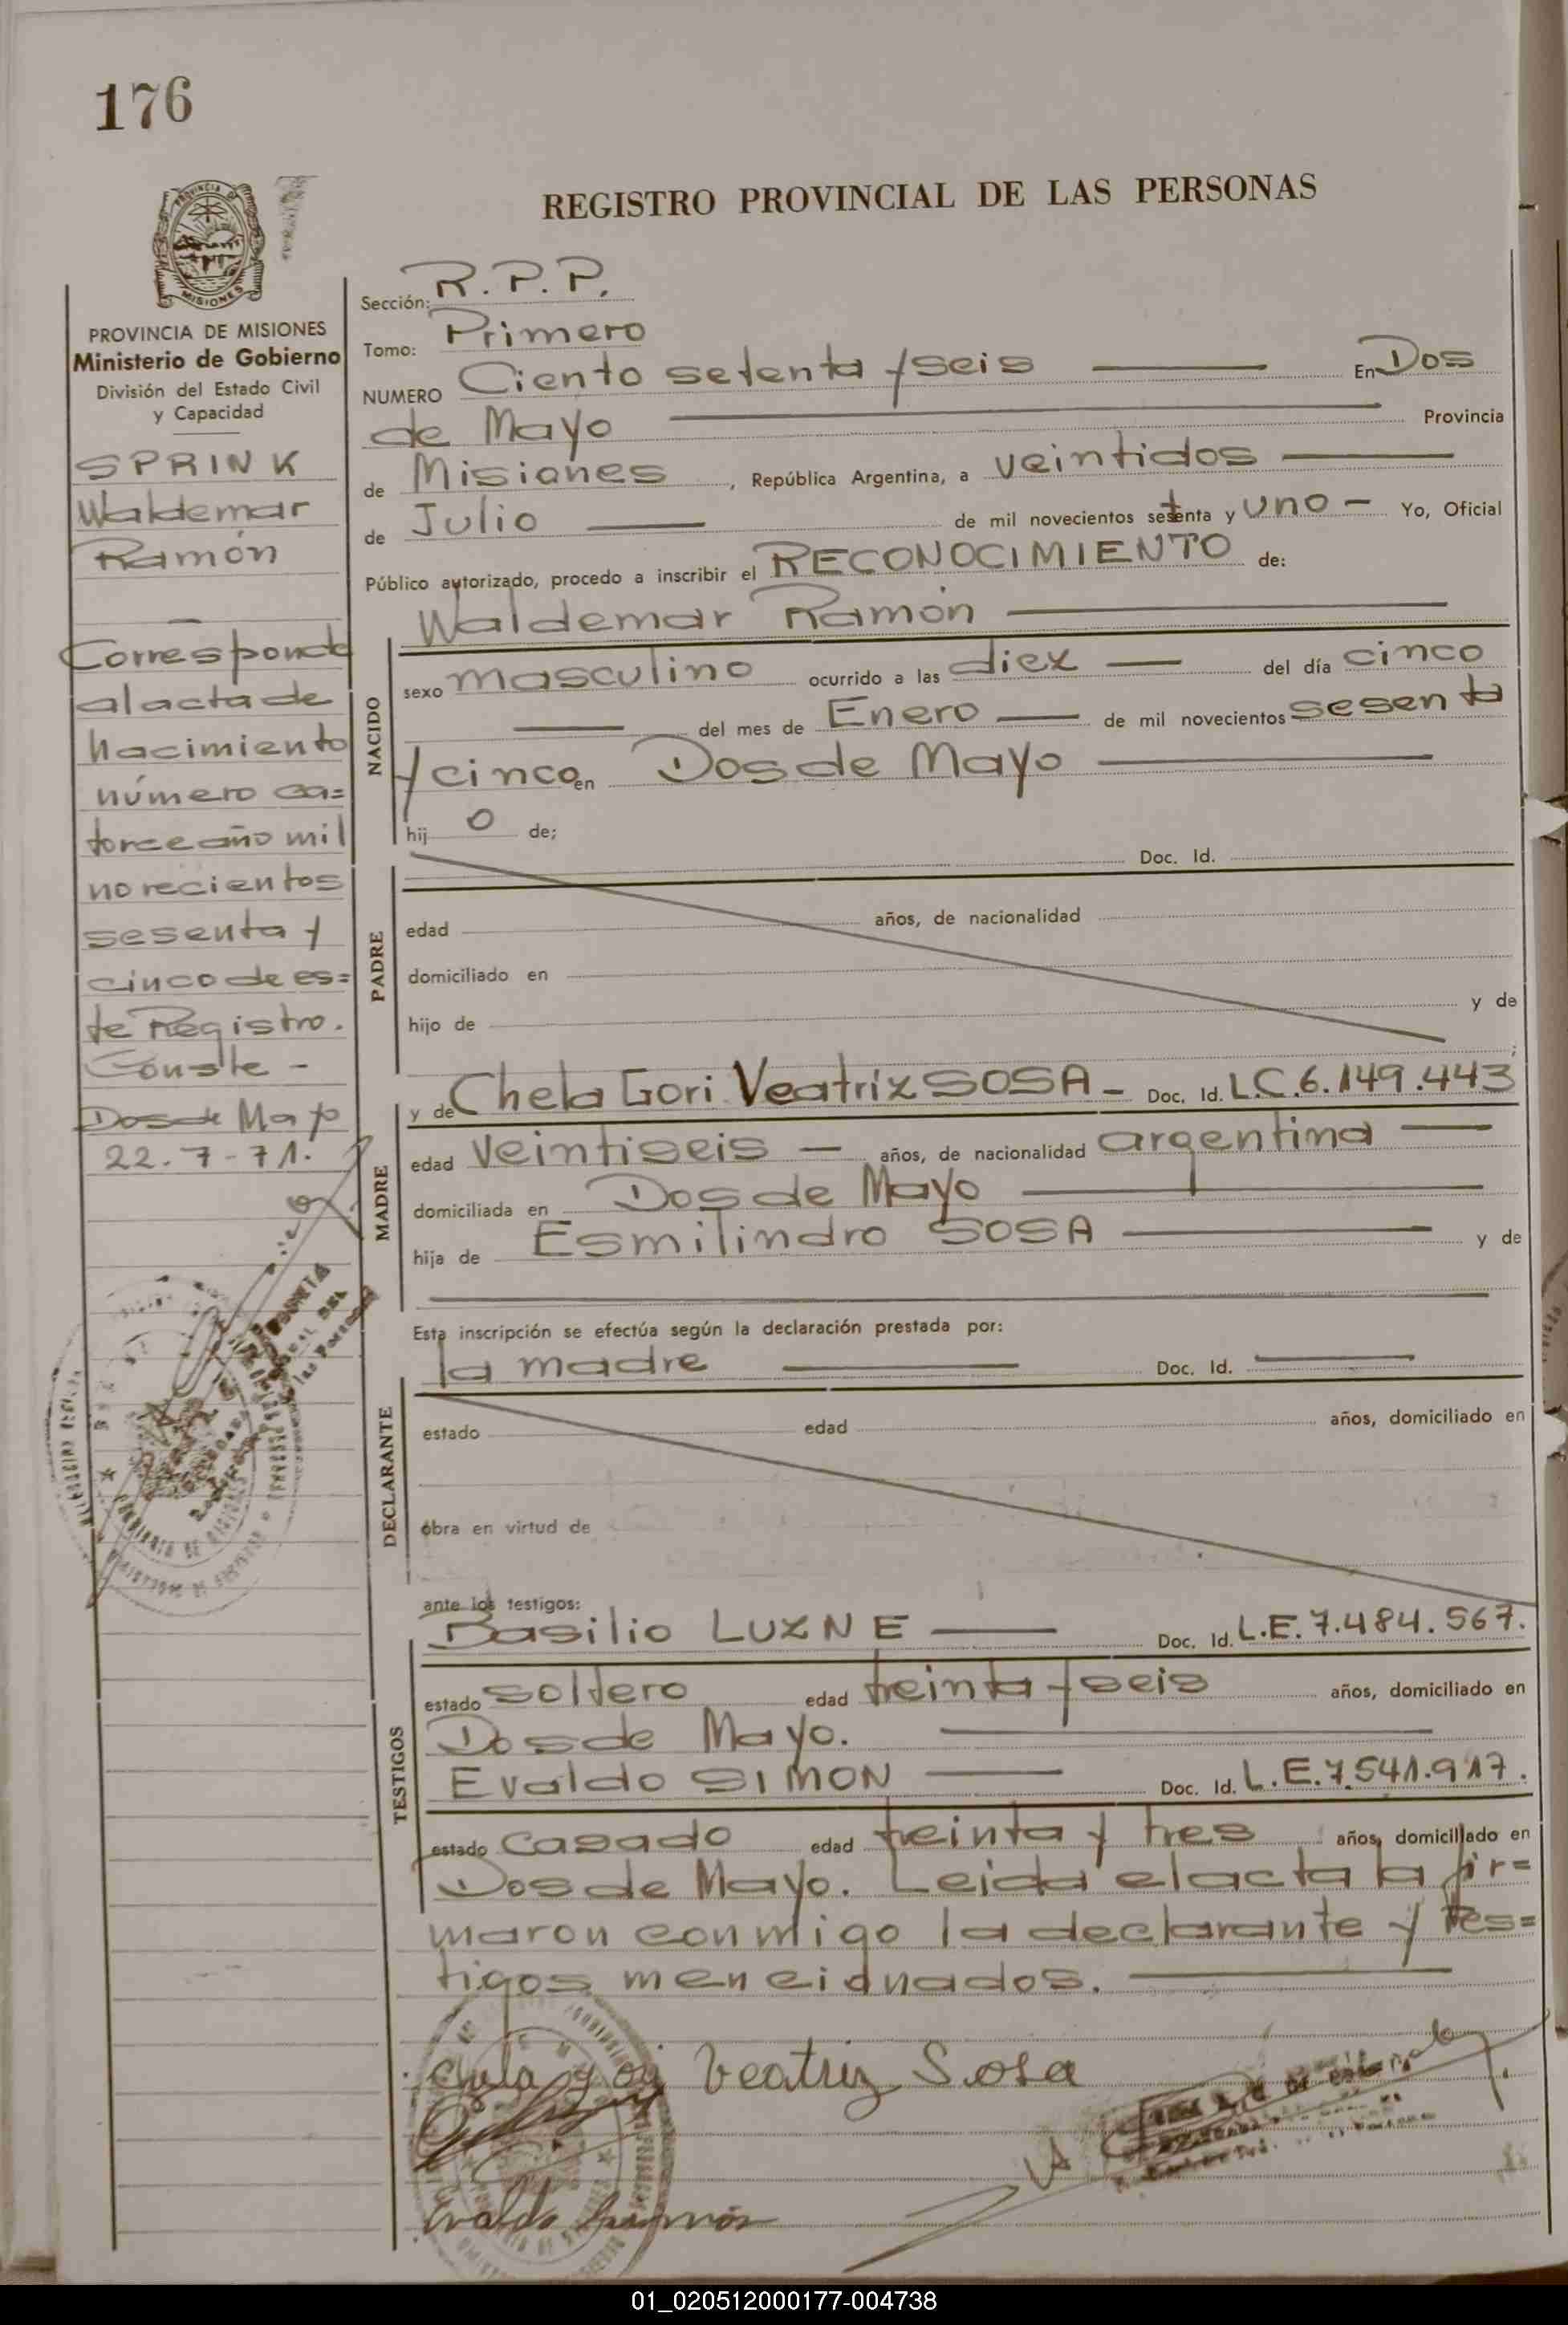 176
REGISTRO PROVINCIAL DE LAS PERSONAS
PROVINCIA DE MISIONES
Ministerio de Gobierno
División del Estado Civil
y Capacidad
SPRINK
Waldemar
Ramón
Corresponde
al acta de
nacimiento
número ca=
torce año mil
novecientos
sesenta y
cinco de es=
te Registro.
Conste -
Dos de Mayo
22.7-71.
Sección: R.P.P.
Tomo: Primero
NUMERO Ciento setenta y seis En Dos
de Mayo Provincia
de Misiones, República Argentina, a veintidos
de Julio de mil novecientos setenta y uno - Yo, Oficial
Público autorizado, procedo a inscribir el RECONOCIMIENTO de:
Waldemar Ramón
NACIDO
sexo masculino ocurrido a las diez del día cinco
del mes de Enero de mil novecientos sesenta
y cinco en Dos de Mayo
hij o de;
Doc. Id.
PADRE
edad años, de nacionalidad
domiciliado en
hijo de y de
;
MADRE
y de Chela Gori Veatriz SOSA - Doc. Id. L.C.6.149.443
edad veintiseis - años, de nacionalidad argentina
domiciliada en Dos de Mayo
hija de Esmilindro SOSA y de
Esta inscripción se efectúa según la declaración prestada por:
la madre Doc. Id.
DECLARANTE
estado edad años, domiciliado en
obra en virtud de
ante los testigos:
TESTIGOS
Basilio LUZNE Doc. Id. L.E.7.484.567.
estado soltero edad treinta y seis años, domiciliado en
Dos de Mayo.
Evaldo SIMON Doc. Id. L.E.7.541.917.
estado casado edad treinta y tres años, domiciliado en
Dos de Mayo. Leida el acta la fir=
maron conmigo la declarante y tes=
tigos mencionados.
Veatriz Sosa
Evaldo
01_020512000177-004738